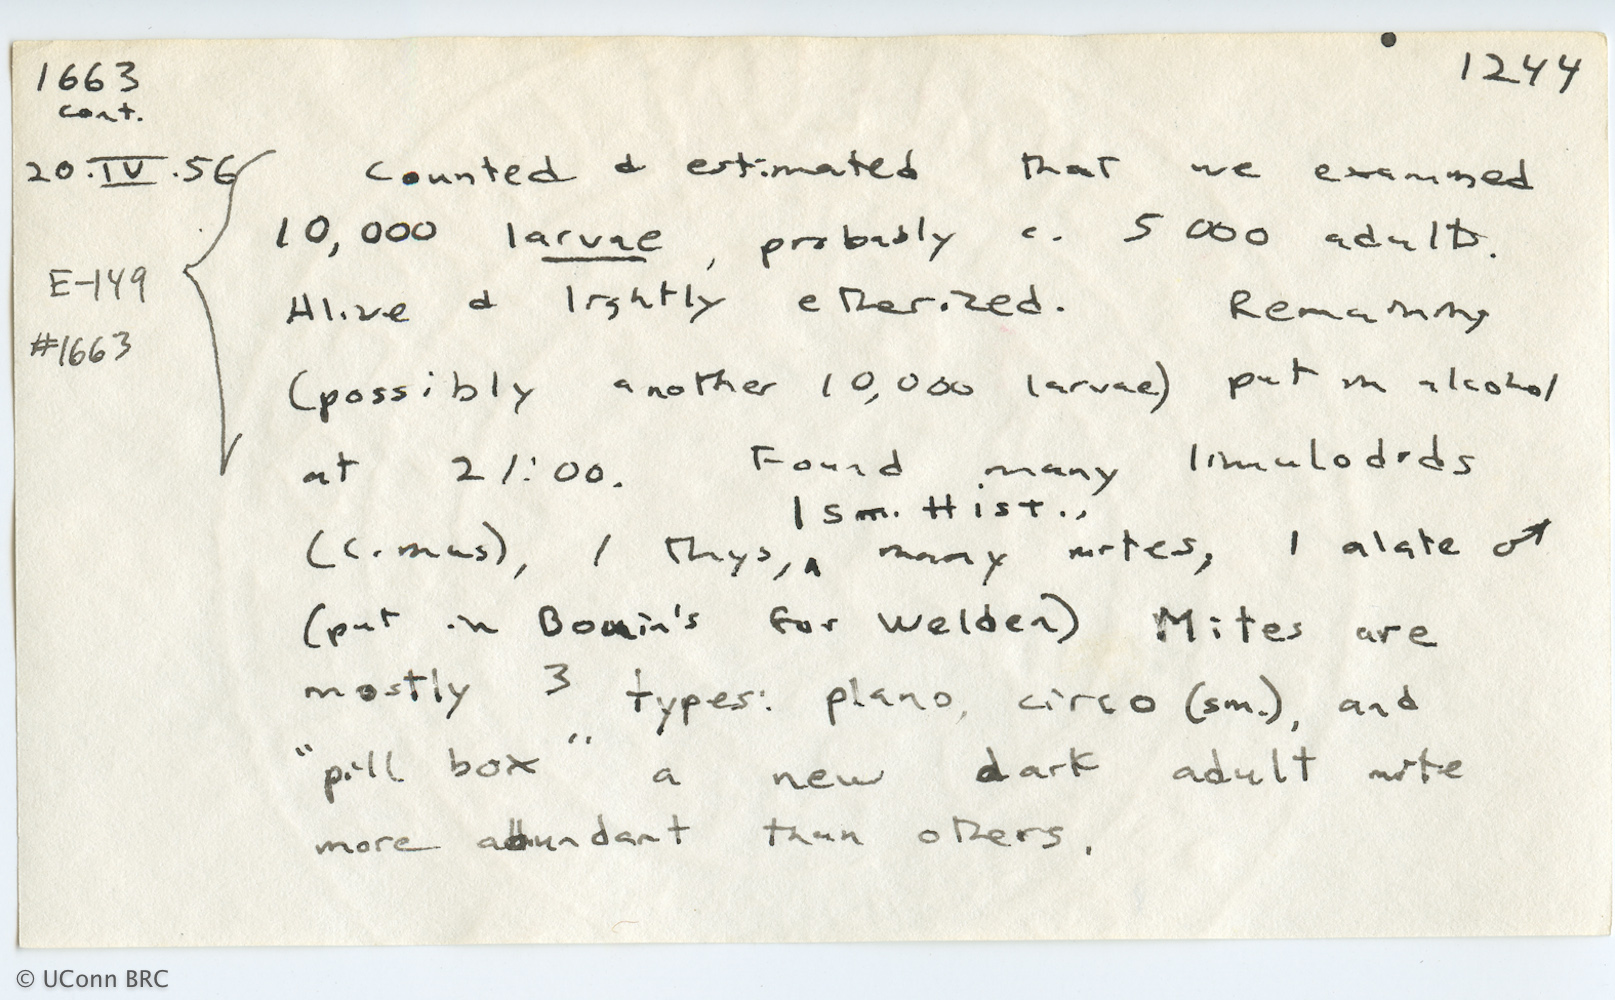 1663
cont.
1244
20.IV.56
E-149
#1663
Counted & estimated that we examined
10,000 larvae, probably c. 5 000 adults.
Alive & lightly etherized. Remaining
(possibly another 10,000 larvae) put in alcohol
at 21:00. Found many limulodids
1 sm. Hist.,
(C. mus), 1 thys, ^ many mites, 1 alate ♂
(put in Bouin's for Welden) Mites are
mostly 3 types: plano, circo (sm.), and
"pill box" a new dark adult mite
more abundant than others.
© UConn BRC